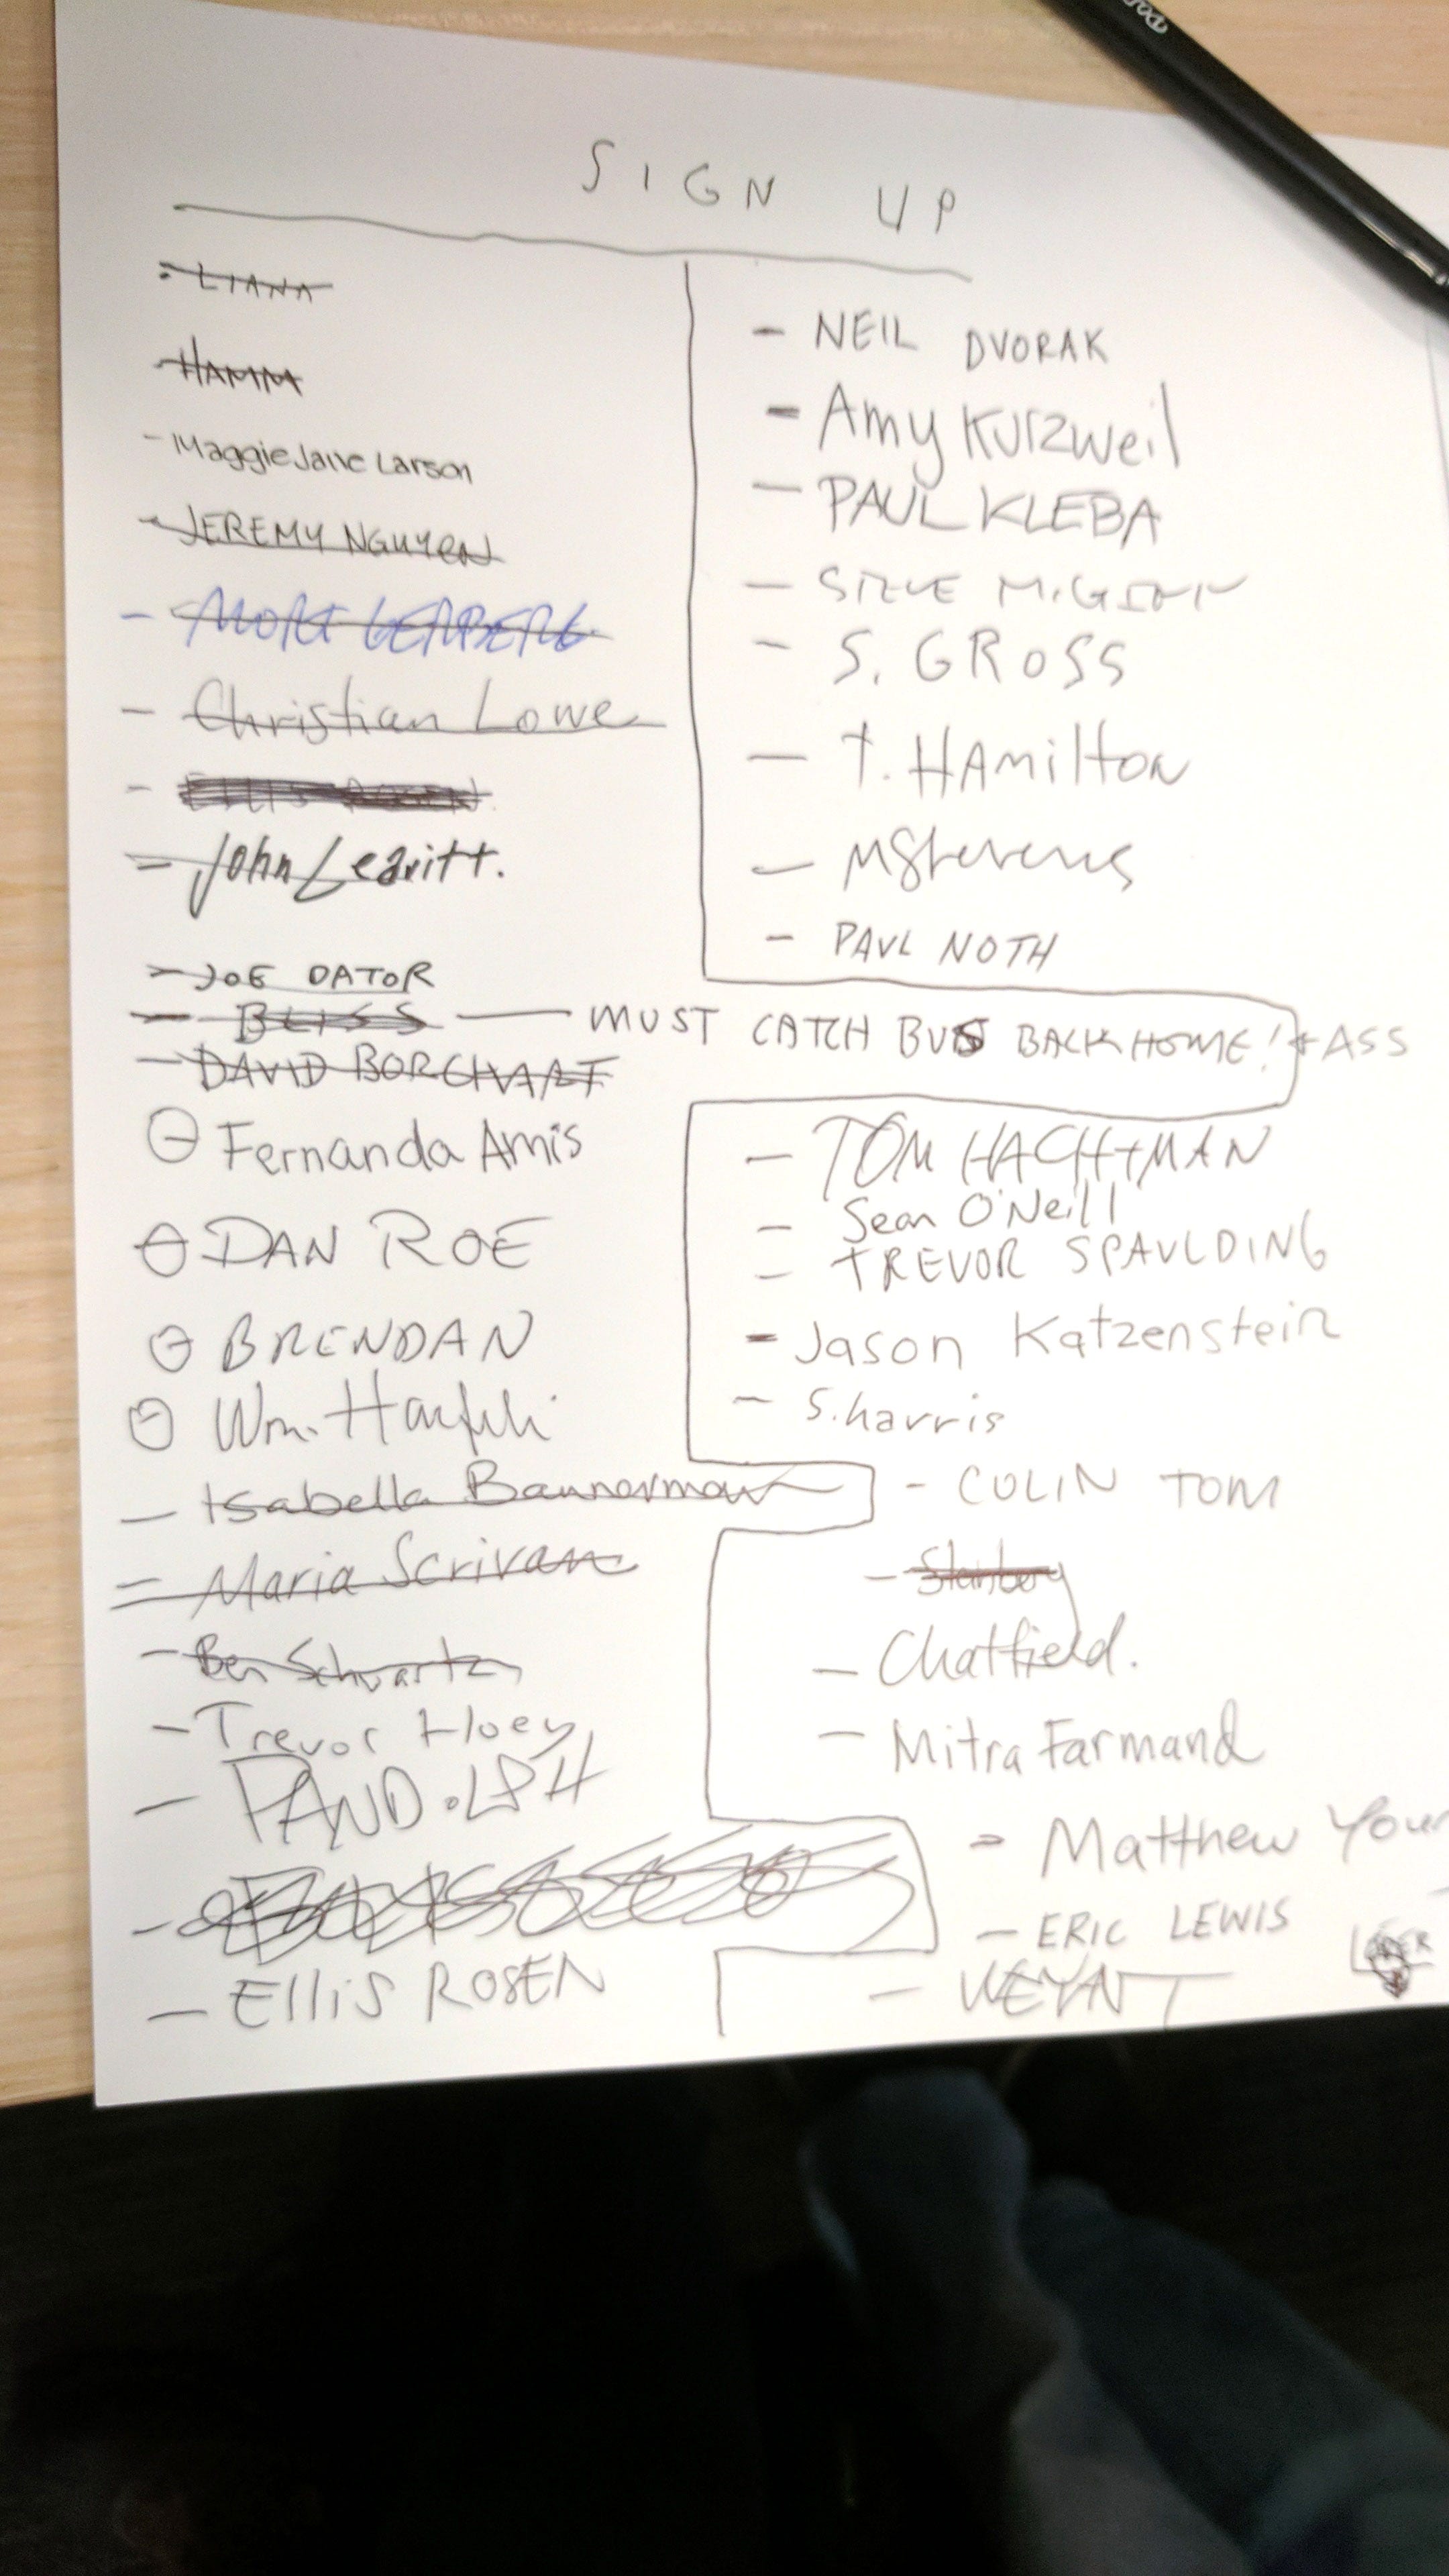 SIGN UP
LIANA
HAMM
- Maggie Jane Larson
- JEREMY NGUYEN
- MORT GERBERG
- Christian Lowe
- John Leavitt.
- JOE DATOR
- BLISS — MUST CATCH BUS BACK HOME! + ASS
- DAVID BORCHART
Fernanda Amis
DAN ROE
BRENDAN
Wm.
- Isabella Bannerman
- Maria Scrivan
- Ben Schwartz
- Trevor Hoey
-
- Ellis ROSEN
- NEIL DVORAK
- Amy Kurzweil
- PAUL KLEBA
- STEVE
- S. GROSS
- T. HAMILTON
- MStevens
- PAUL NOTH
- TOM HACHTMAN
- Sean O'Neill
- TREVOR SPAULDING
- Jason Katzenstein
- S. harris
- COLIN TOM
-
- Chatfield.
- Mitra Farmand
- Matthew
- ERIC LEWIS
- WEYNT